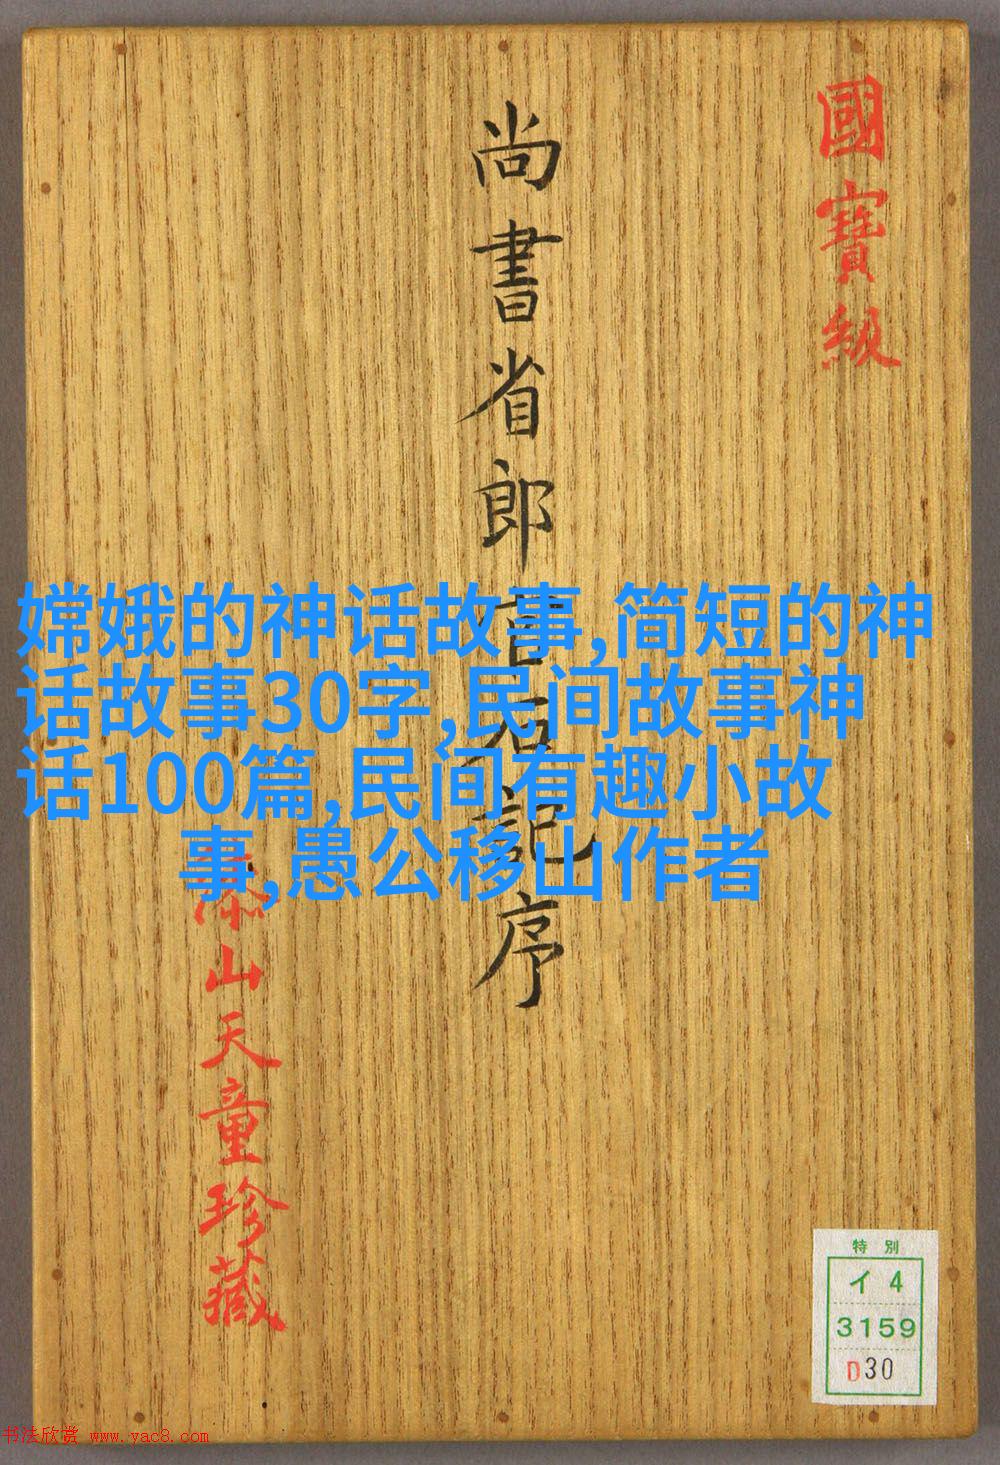 國寶級
尚書省郎官石記序
嫦娥的神话故事,简短的神
话故事30字,民间故事神
话100篇,民间有趣小故
事,愚公移山作者
泰山天童珍藏
特別
イ 4
3159
D30
书法欣赏 www.yac8.com